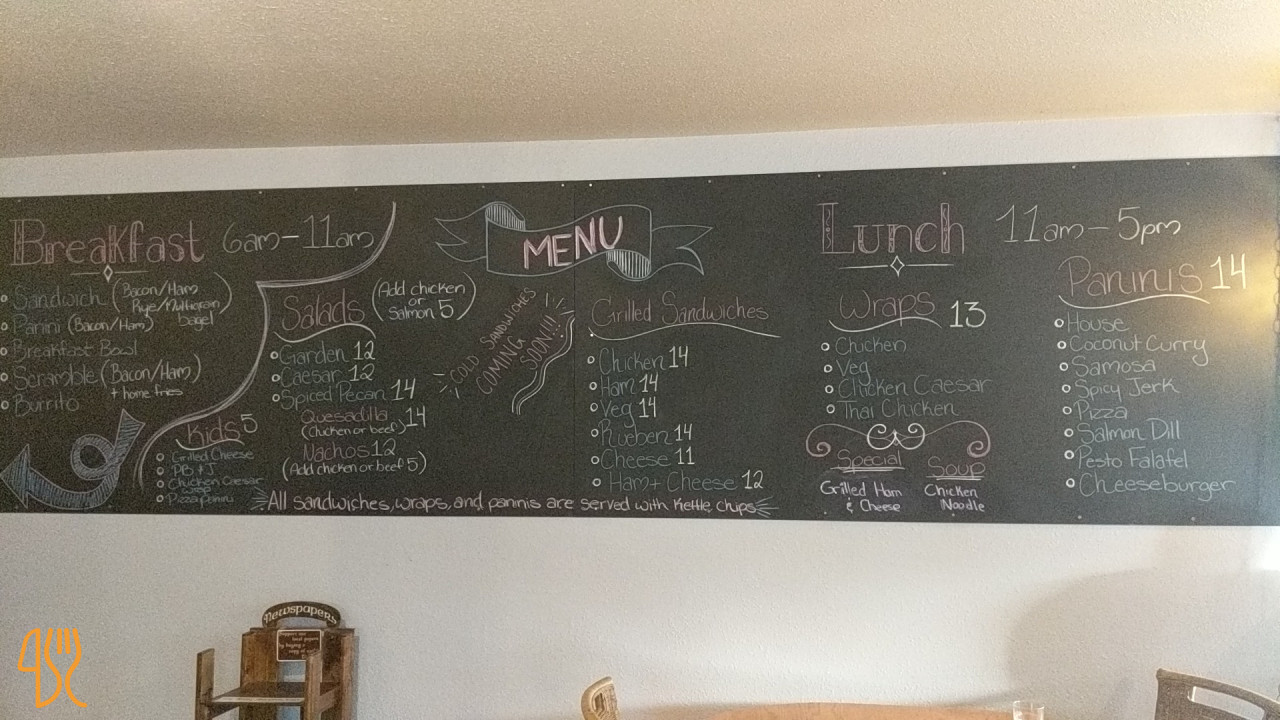 Breakfast 6am-11am
Sandwich (Bacon/Ham
Rye/Multigrain
bagel)
Panini (Bacon/Ham)
Breakfast Bowl
Scramble (Bacon/Ham)
+ home fries
Burrito
Kids 5
Grilled Cheese
PB & J
Chicken Caesar
wrap
Pizza panini
Salads (Add chicken
or
Salmon 5)
Garden 12
Caesar 12
Spiced Pecan 14
Quesadilla 14
(Chicken or beef)
Nachos 12
(Add chicken or beef 5)
MENU
COLD SANDWICHES
COMING
SOON!!!
Grilled Sandwiches
Chicken 14
Ham 14
Veg 14
Rueben 14
Cheese 11
Ham + Cheese 12
All sandwiches, wraps, and pannis are served with Kettle chips
Lunch 11am-5pm
Wraps 13
Chicken
Veg
Chicken Caesar
Thai Chicken
Special
Grilled Ham
& Cheese
Soup
Chicken
Noodle
Paninis 14
House
Coconut Curry
Samosa
Spicy Jerk
Pizza
Salmon Dill
Pesto Falafel
Cheeseburger
Newspapers
Support our
local papers
by buying a
copy of